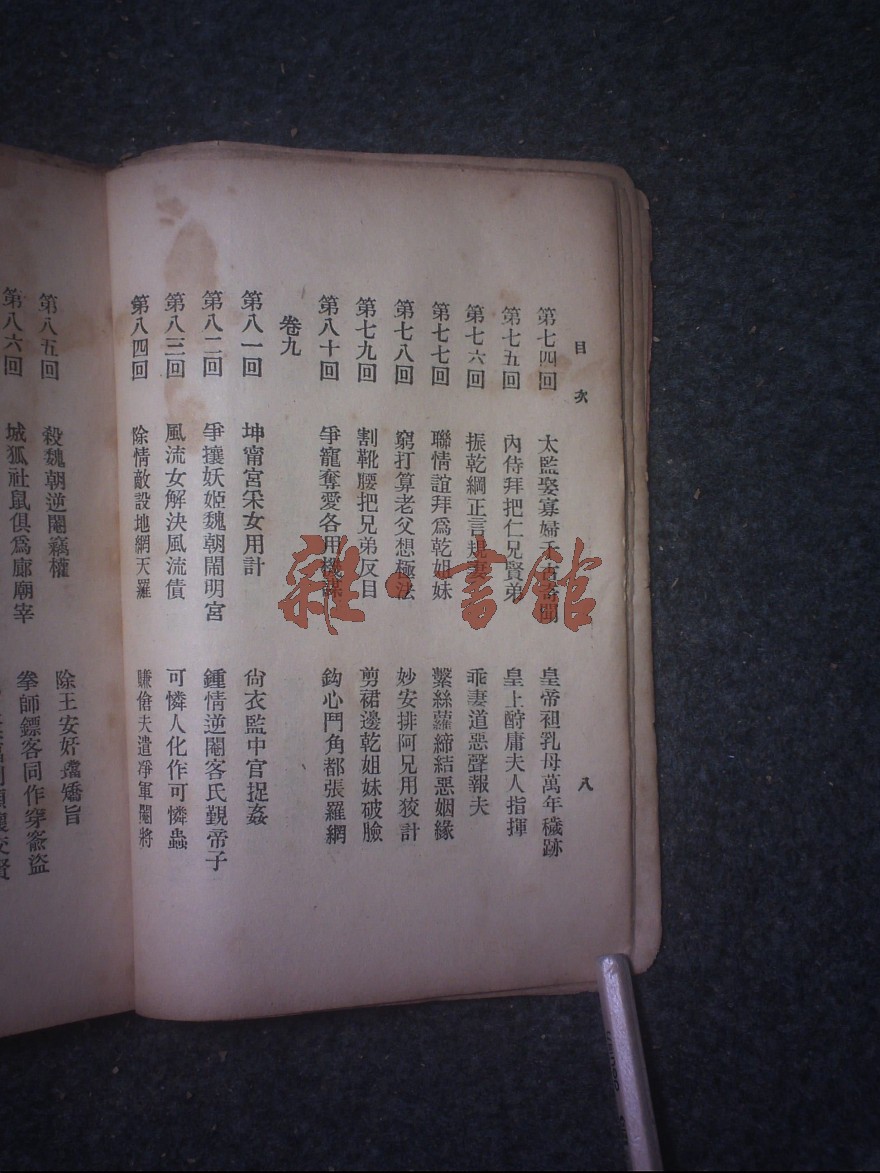 目次
八
第七四回 太監娶寡婦千古奇聞 皇帝祖乳母萬年穢跡
第七五回 內侍拜把仁兄賢弟 皇上酹庸夫人指揮
第七六回 振乾綱正言規妻 乖妻道惡聲報夫
第七七回 聯情誼拜爲乾姐妹 繫絲蘿締結惡姻緣
第七八回 窮打算老父想極法 妙安排阿兄用狡計
第七九回 割靴腰把兄弟反目 剪裙邊乾姐妹破臉
第八十回 爭寵奪愛各用機謀 鈎心鬥角都張羅網
卷九
第八一回 坤甯宮宋女用計 尙衣監中官捉姦
第八二回 爭攘妖姬魏朝鬧明宮 鍾情逆閹客氏覲帝子
第八三回 風流女解決風流債 可憐人化作可憐蟲
第八四回 除情敵設地網天羅 賺偺夫遣凈軍閹將
第八五回 殺魏朝逆閹竊權 除王安奸璫矯旨
第八六回 城狐社鼠俱爲廊廟宰 拳師鏢客同作穿窬盜
雜·書館